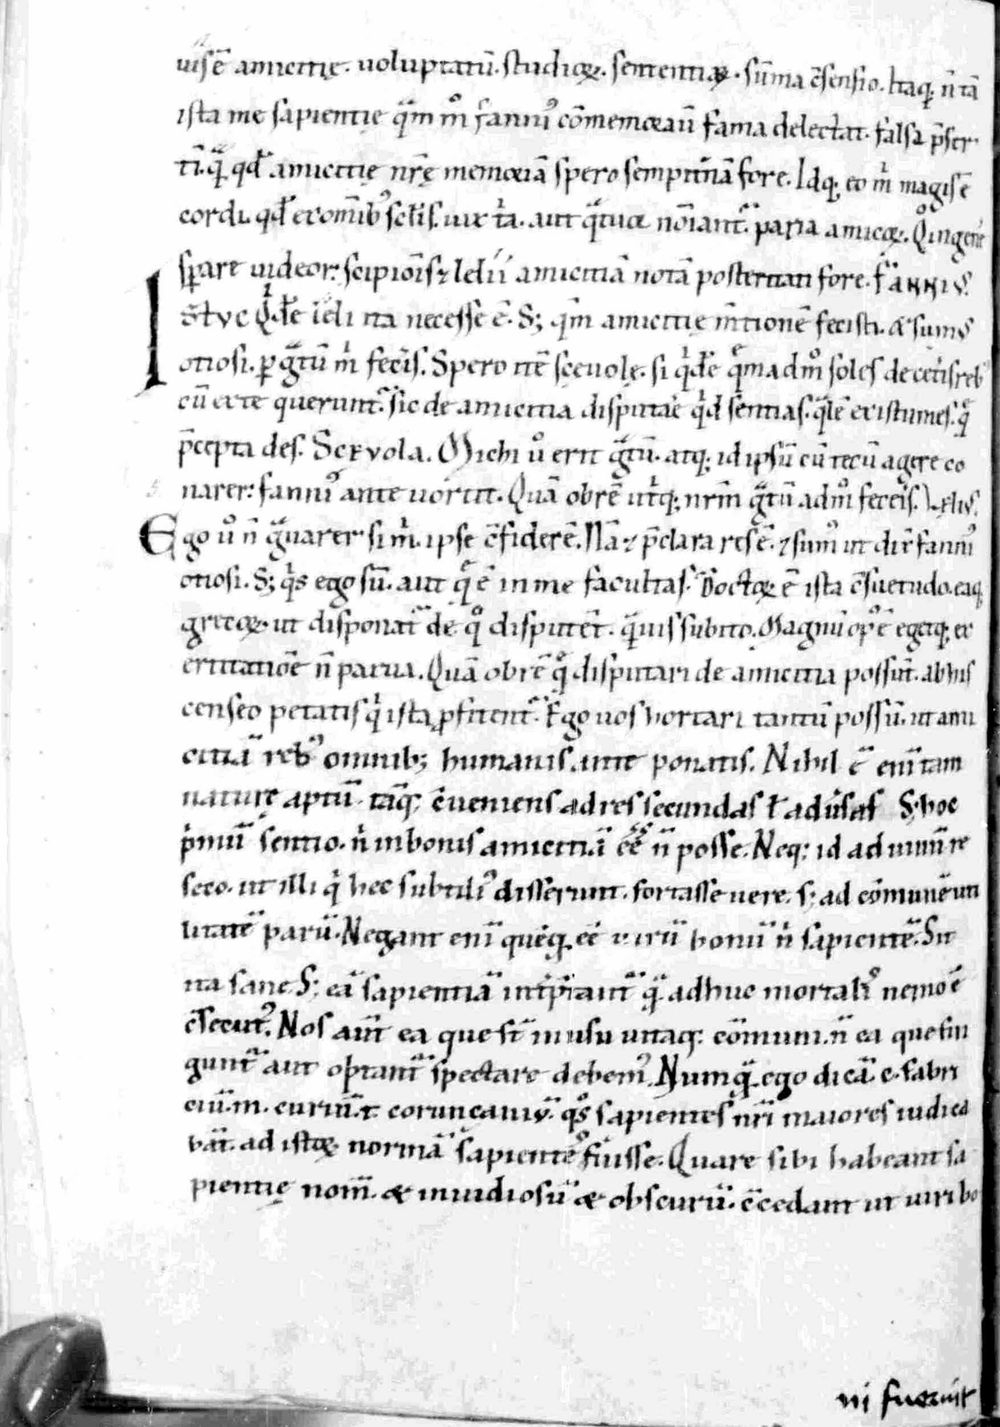 uisē amicitię. uoluptatū. studioꝝ. sententiaꝝ. sūma c̄sensio. Itaq; n̄ tā
ista me sapientię q̄m m̊ fanni᾽ cōmemorauı̄ fama delectat. falsa p̄ser
tī. q̄ qđ amicitię nr̄ę memoriā spero sempit̄nā fore. Idq; eo m̄ magis ē
cordi. qđ ex omīb᾽ sclīs. uix t̄a. aut q̄tuor noīant᷑ paria amicoꝝ. Q̊ in genere
sperare uideor. scipiōis ⁊ lelii amicitiā notā posteritati fore. FANNIVS.
Istvc Qđē leli ita necesse ē. S; q̄m amicitię m̄tionē fecisti. & sum᾽
otiosi. ꝑ g̃tū m̄ fec̄is. Spero itē scęuolę. si q̄dē q̄madm̊ soles de cet̄is reb᾽
cū ex te querunt᷑. sic de amicitia disputar̄ q̄d sentias. q̄lē existumes. q̄
p̄cepta des. SCEVOLA. Michi ů erit g̃tū. atq; id ipsū cū tecū agere co
narer. fanni᾽ ante uortit. Quā obrē utq̄; nrm̄ g̃tū adm̊ fecer̄is. LELIVS.
Ego ů n̄ g̃uarer si m̄. ipse c̄fiderē. Nā ⁊ p̄clara res ē. ⁊ sum᾽ ut dix̄ fanni᾽
otiosi. S; q̄s ego sū. aut q̄ ē in me facultas. Doctoꝝ ē ista c̄suetudo. eaq;
grecoꝝ. ut disponat᷑ de q̊ disputēt. q̄uis subito. Magnū op᾽ ē egetq; ex
ertitatiōe n̄ parua. Quā obrē q̄ disputari de amicitia possūt. ab his
censeo petatis q̄ ista ꝓfitent᷑. Ego uos hortari tantū possū. ut ami
citiā reb᾽ omnib; humanis. ante ponatis. Nihil ē enī tam
naturę aptū. taq̄; c̄ueniens ad res secundas ł adūsas S; hoc
p̄mū sentio. n̄ in bonis amicitiā eē n̄ posse. Neq; id ad uiuū re
seco. ut illi q̄ hec subtili᾽ disserunt. fortasse uere. s; ad cōmunē uti
litatē parū. Negant enī quēq; eē uirū bonū n̄ sapientē. Sit
ita sane. S; eā sapientiā int̄p̄tant᷑ q̄ adhuc mortali᾽ nemo ē
c̄secut᾽. Nos aūt ea que sт̄ in usu uitaq; cōmuni. n̄ ea que fin
gunt᷑ aut optant᷑ spectare debem᾽. Numq̄ ego dicā. c. fabri
ciū. m. curiū. t. coruncaniū. q̊s sapientes nr̄i maiores iudica
bāt. ad istoꝝ normā sapientes fuisse. Quare sibi habeant sa
pientię nom̄. & inuidiosū & obscurū. c̄cedant ut uiri bo
ni fuerint